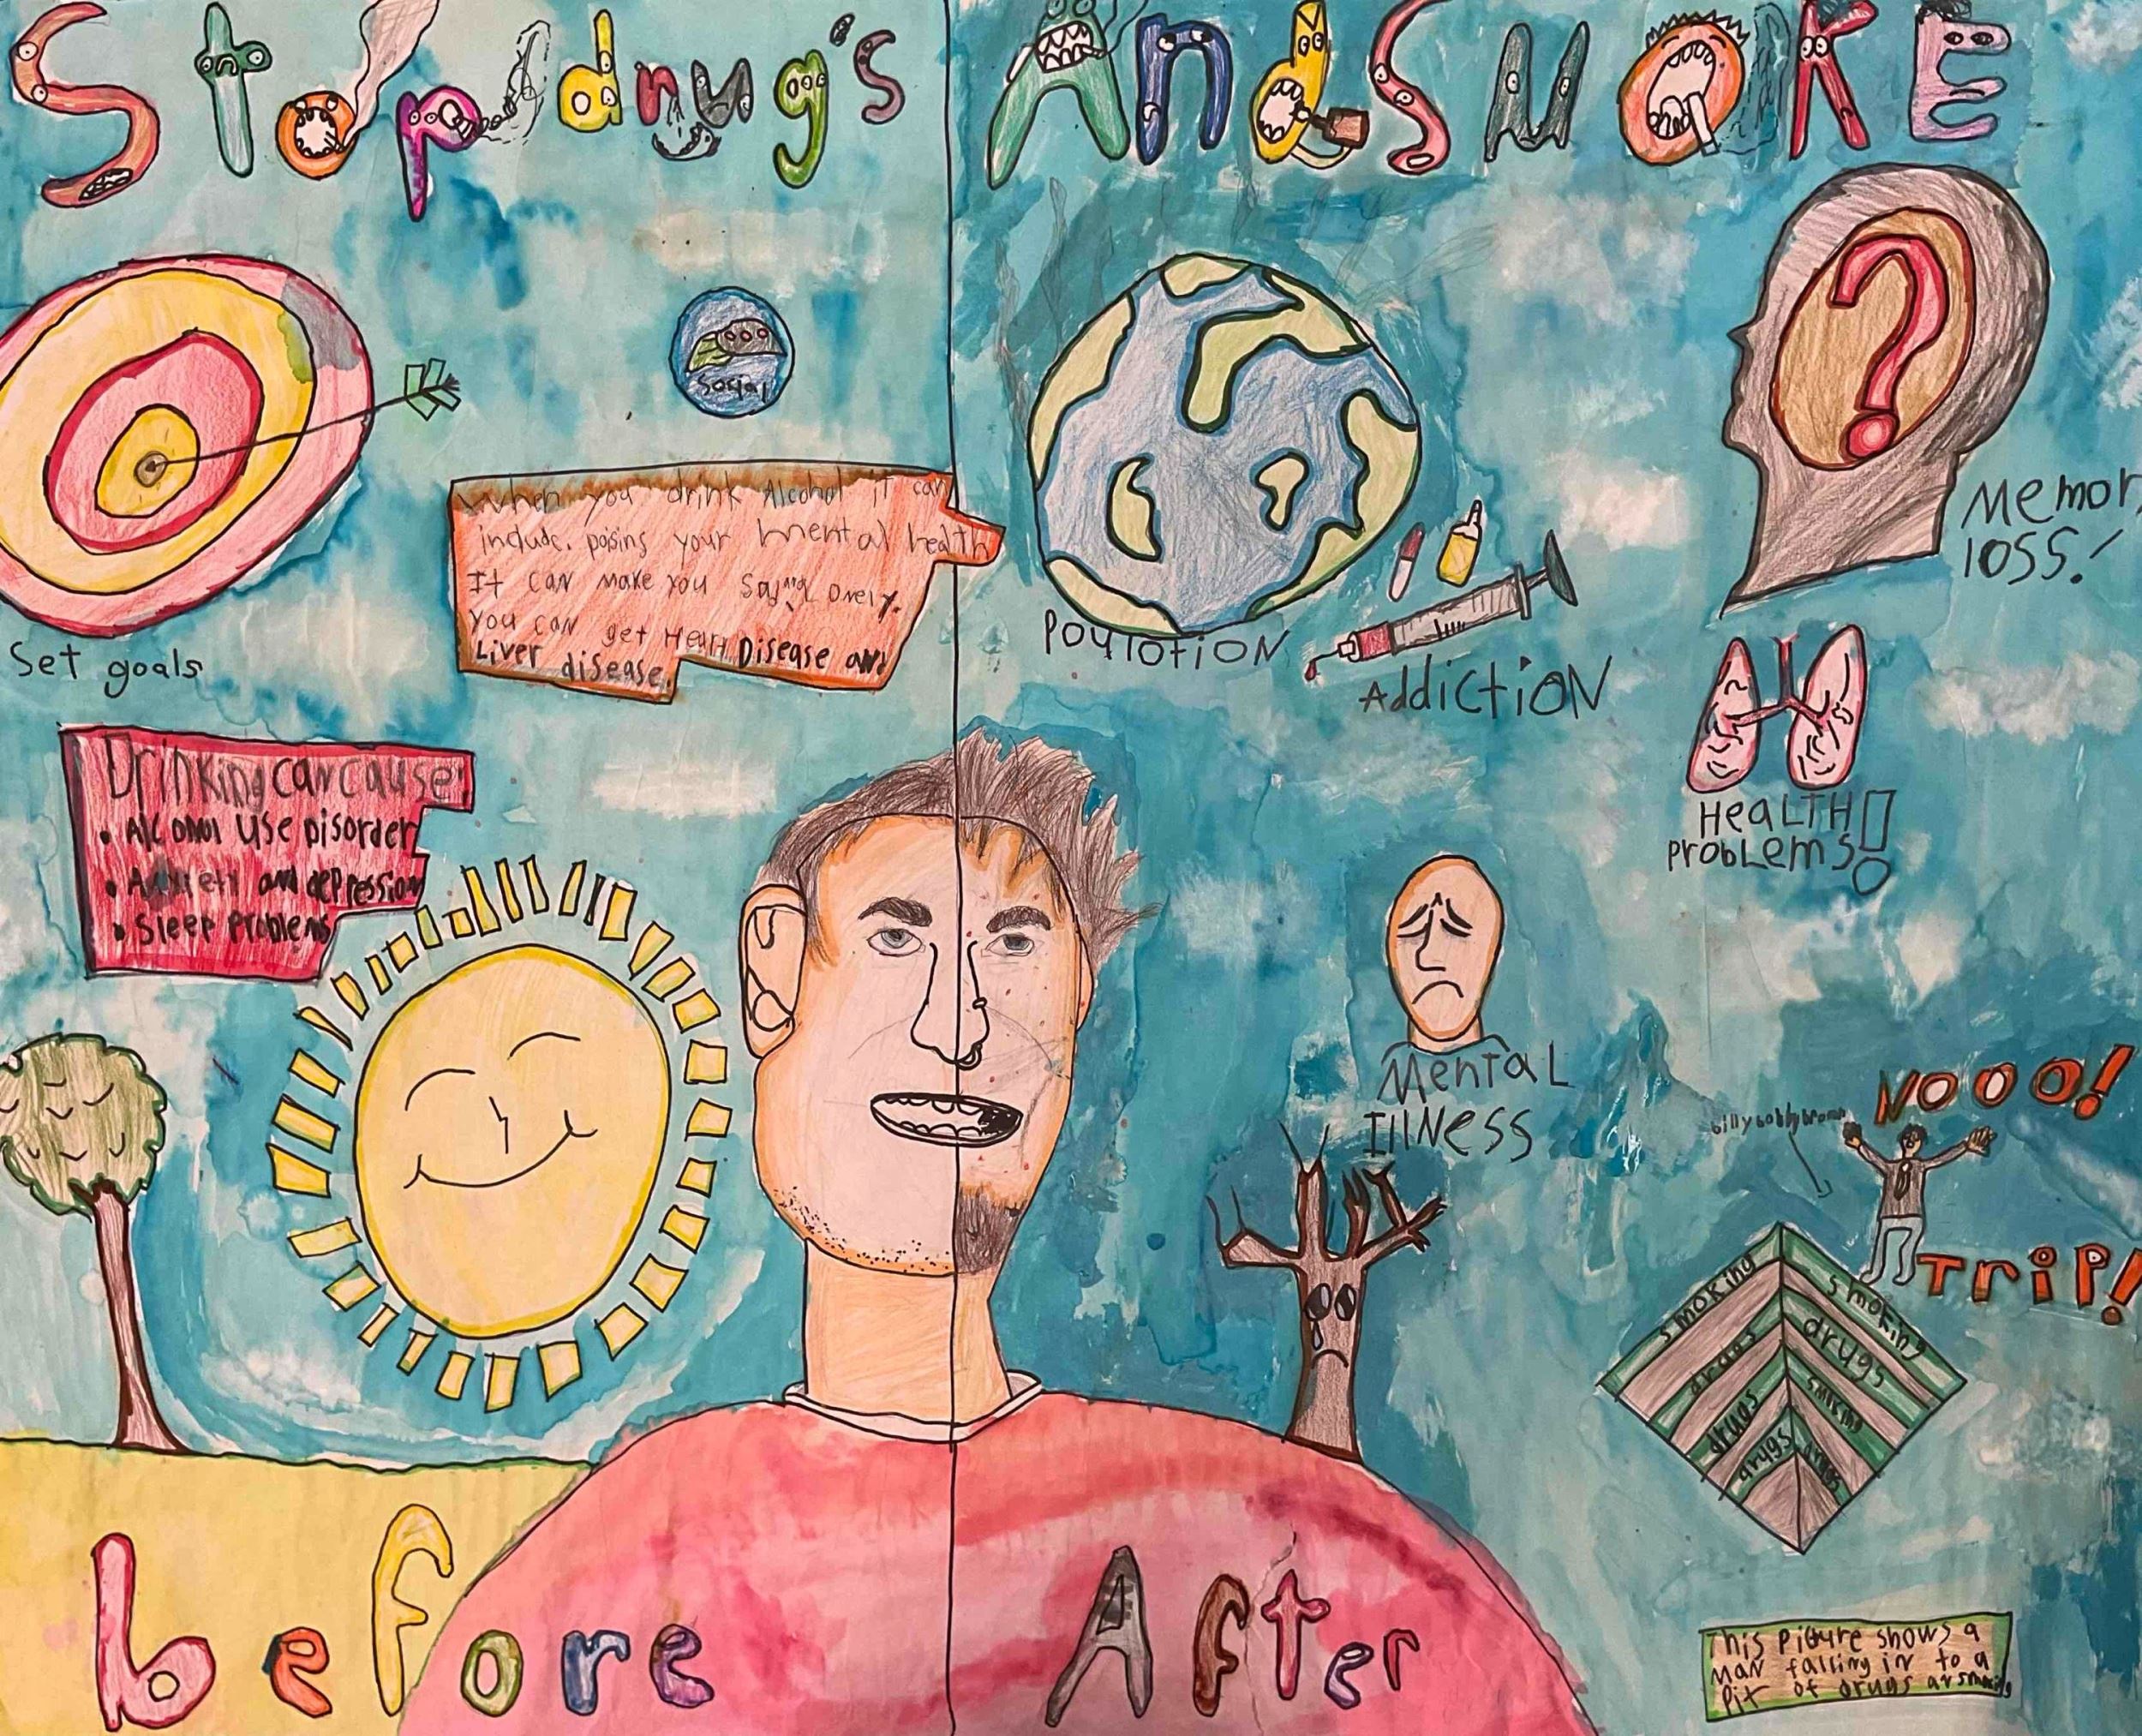 Stop drug's And SMOKE
Social
When you drink Alcohol it can
include. poising your mental health
It can make you
you can get Heart Disease and
Liver disease.
Set goals
Poulotion
Addiction
Memor
loss!
Drinking can cause:
• Alcohol Use Disorder
• Anxiety and depression
• Sleep Problems
HeaLTH
ProbLems!
Mental
Illness
NOOO!
billy bobby brown
TriP!
smoking
smoking
drugs
drugs
smoking
drugs
drugs
drugs
before
After
This Picture shows a
man falling in to a
Pit of drugs